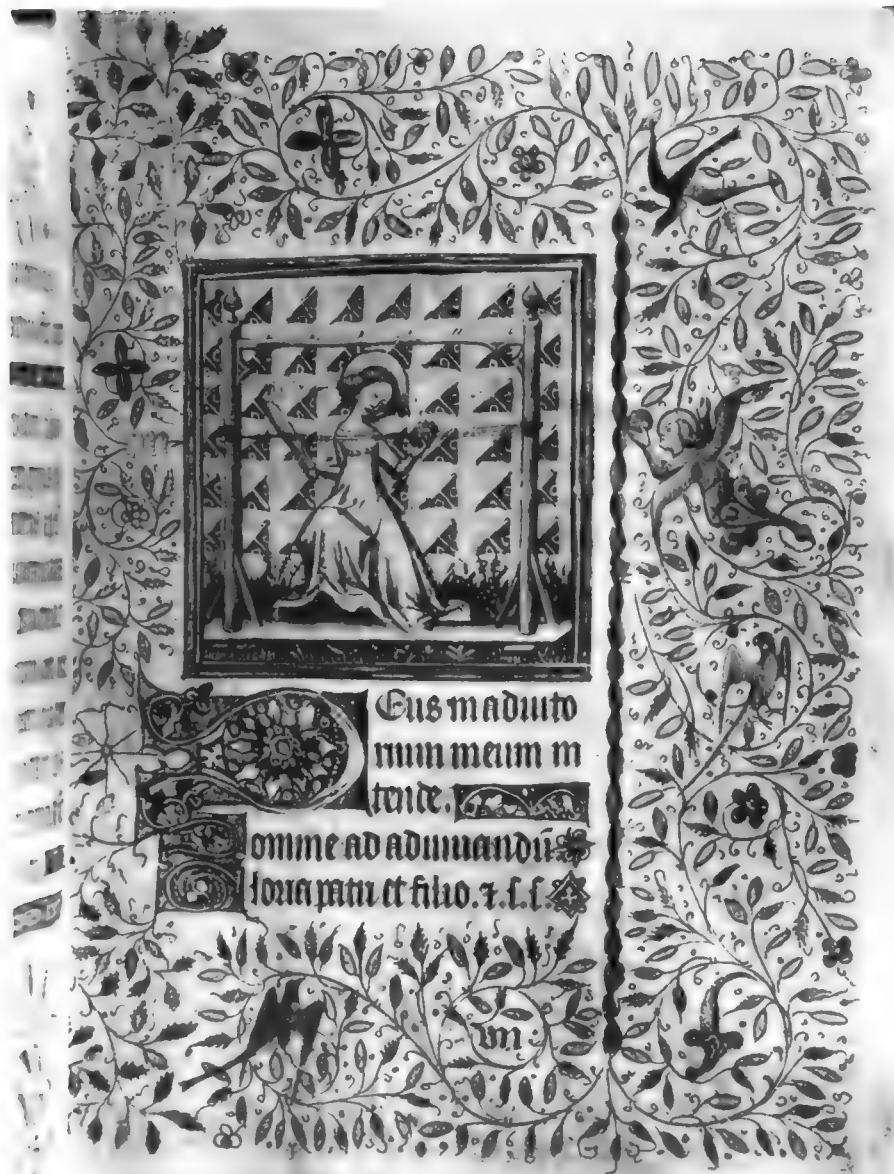 Deus in adiuto
rium meum in
tende.
Domine ad adiuuandū
Gloria patri et filio. ⁊. s. s.
vii